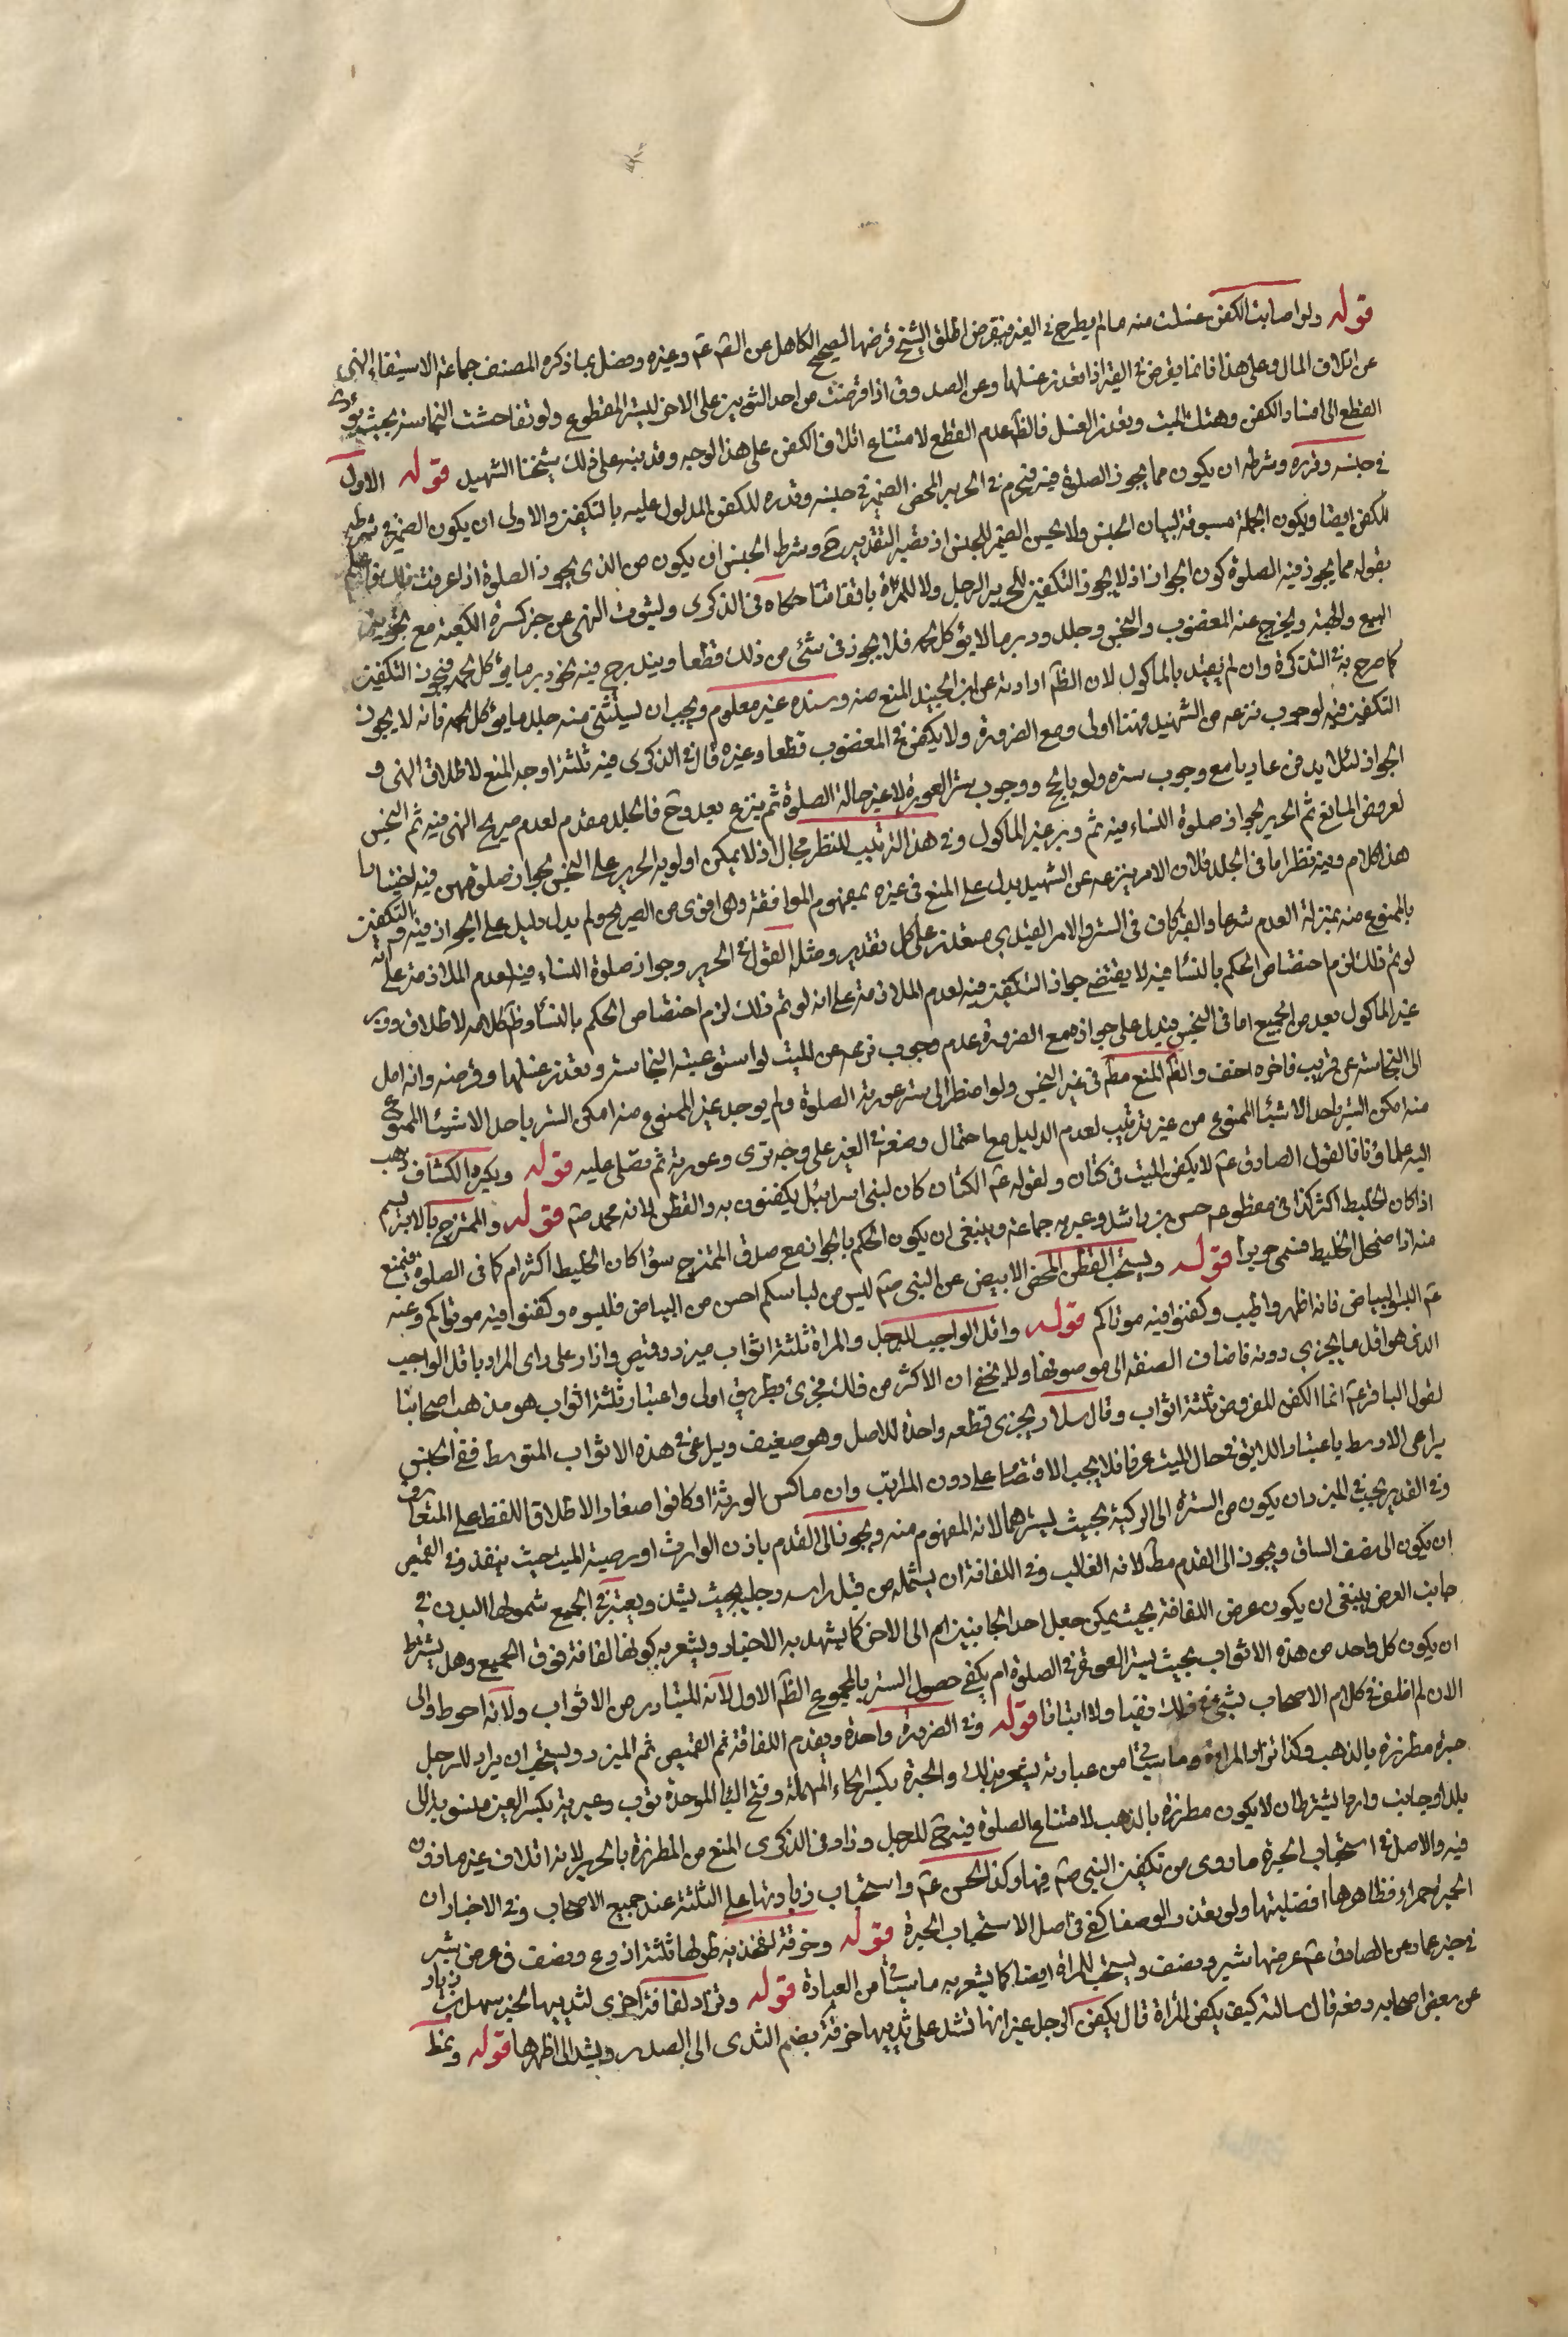 قوله ولو اصابت الكفن غسلت منه ما لم يطرح في القبر فيقرض اطلق الشيخ قرضها لصحيح الكاهلى عن الصم عم وغيره وفصل بما ذكره المصنف جماعة الاستيفاء النهى
عن اتلاف المال وعلى هذا فانما يقرض في القبر اذا تعذر غسلها وعن الصدوق اذا قرضت من احد الثوبين على الاخر ليستر المقطوع ولو تفاحشت النجاسة بحيث يؤدى
القطع الى افساد الكفن وهتك الميت وتعذر الغسل فالظم عدم القطع لامتناع اتلاف الكفن على هذا الوجه وقد نبه على ذلك شيخنا الشهيد قوله الاول
في جنسه وقدره وشرطه ان يكون مما يجوز الصلوة فيه فيحرم في الحرير المحض الضمير في جنسه وقدره للكفن المدلول عليه بالتكفين والاولى ان يكون الضمير في شرطه
للكفن ايضا ويكون الجملة مسوقة لبيان الجنس ولا يحسن الضمير للجنس اذ يصير التقدير ح وشرط الجنس ان يكون من الذى يجوز الصلوة اذا عرفت ذلك فاعلم
بقوله مما يجوز فيه الصلوة كون الجواز اذ لا يجوز التكفين بالحرير للرجل ولا للمرأة باتفاقنا حكاه في الذكرى ولثبوت النهى عن خبز كسوة الكعبة مع تجويز
البيع والهبة ويخرج عنه المغصوب والنجس وجلد ووبر ما لا يؤكل لحمه فلا يجوز في شئ من ذلك قطعا ويندرج فيه نحو وبر ما يؤكل لحمه فيجوز التكفين
كما صرح به في التذكرة وان لم يقيد بالماكول لان الظم ارادته عن ابن الجنيد المنع منه وسنده غير معلوم ويجب ان يستثنى منه جلد ما يؤكل لحمه فانه لا يجوز
التكفين فيه لوجوب نزعه من الشهيد فهنا اولى ومع الضرورة ولا يكفن في المغصوب قطعا وغيره قال في الذكرى فيه ثلثة اوجه المنع لاطلاق النهى و
الجواز لئلا يدفن عاريا مع وجوب ستره ولو بالحجر ووجوب ستر العورة لا غير حالة الصلوة ثم ينزع بعد وح فالجلد مقدم لعدم صريح النهى فيه ثم النجس
لعروض المانع ثم الحرير لجواز صلوة النساء فيه ثم وبر غير الماكول وفي هذا الترتيب للنظر مجال اذ لا يمكن اولوية الحرير على النجس لجواز صلوتهن فيه اختيارا
هذا كلام وفيه نظر اما في الجلد فلان الامر بنزعه عن الشهيد يدل على المنع في غيره بمفهوم الموافقة وهى اقوى من الصريح ولم يدل دليل على الجواز فيه والتكفين
بالممنوع منه بمنزلة العدم شرعا والقبر كاف في الستر والامر القيدي متعذر على كل تقدير ومثله القول في الحرير وجواز صلوة النساء فيه لعدم الملازمة على انه
لو تم ذلك لزم اختصاص الحكم بالنسا فيه لا يقتضى جواز التكفين فيه لعدم الملازمة على انه لو تم ذلك لزم اختصاص الحكم بالنسا وظم كلامه الاطلاق ووبر
غير الماكول بعد من الجميع اما في النجس فيدل على جوازه مع الضرورة عدم وجوب نزعه عن الميت لو استوعبته النجاسة وتعذر غسلها وقرضه وانه امل
الى النجاسة عن قريب فاخره اخف والظم المنع مطم في غير النجس ولو اضطر الى ستر عورته الصلوة ولم يوجد غير الممنوع منه امكن الستر باحد الاشيئا الممنوع
منه امكن الستر باحد الاشيئا الممنوع من غير ترتيب لعدم الدليل مع احتمال وضعه في القبر على وجه ترى وعورته ثم يصلى عليه قوله ويكره الكتان ذهب
اليه علماؤنا لقول الصادق عم لا يكفن الميت في كتان ولقوله عم الكتان كان لبنى اسرائيل يكفنون به والقطن لامة محمد صم قوله والممتزج بالابريسم
اذا كان الخليط اكثر كذا في مقطوعة حسن بن راشد وغيره جماعة وينبغى ان يكون الحكم بالجواز مع صدق الممتزج سؤا كان الخليط اكثر ام كما في الصلوة فيمنع
منه اذا اضمحل الخليط فسمى حريرا قوله ويستحب القطن المحض الابيض عن النبى صم ليس من لباسكم احسن من البياض فلبسوه وكفنوا فيه موتاكم وعنه
عم البسوا البياض فانه اطهر واطيب وكفنوا فيه موتاكم قوله واقل الواجب للرجل والمراة ثلثة اثواب ميزر وقميص وازار على راى المراد باقل الواجب
الذى هو اقل ما يجزى دونه فاضاف الصفة الى موصوفها ولا يخفى ان الاكثر من ذلك مجزئ بطريق اولى واعتبار ثلثة اثواب هو مذهب اصحابنا
لقول الباقر عم انما الكفن المفروض ثلثة اثواب وقال سلار يجزى قطعه واحدة للاصل وهو ضعيف ويراعى في هذه الاثواب المتوسط ففى الجنس
يراعى الاوسط باعتبار اللايق بحال الميت عرفا فلا يجب الاقتصا على دون المراتب وان ماكس الورثة او كانوا صغارا الاطلاق اللفظ على المتعارف
وفي القدر يجب في الميزر ان يكون من السترة الى الركبة بحيث يسترهما لانه المفهوم منه ويجوز الى القدم باذن الوارث او وصية الميت حيث ينفذ وفي القميص
ان يكون الى نصف الساق ويجوز الى القدم مطلقا لانه الغالب وفي اللفافة ان يشمله من قبل راسه ورجليه بحيث يشد ويعتبر في الجميع شمولها البدن في
جانب العرض ينبغى ان يكون عرض اللفافة بحيث يمكن جعل احد الجانبين ام الى الاخر كما يشهد به الاخبار ويشعر به كونها لفافة فوق الجميع وهل يشترط
ان يكون كل واحد من هذه الاثواب بحيث يستر العورة في الصلوة ام يكفى حصول الستر بالمجموع الظم الاول لانه المتبادر من الاثواب ولانه احوط والى
الان لم اظفر في كلام الاصحاب بشئ في ذلك نفيا ولا اثباتا قوله وفي الضرورة واحدة ويقدم اللفافة ثم القميص ثم الميزر ويستحب ان يزاد للرجل
حبرة مطرزة بالذهب وكذا تزاد المراة وما سيئتا من عبارته يشعر بذلك والحبرة بكسر الحاء المهملة وفتح البا الموحدة ثوب وعبرية بكسر العين منسوبة الى
بلد او جانب واد وانما يشترط ان لا يكون مطرزة بالذهب لامتناع الصلوة فيه ح للرجل وزاد في الذكرى المنع من المطرزة بالحرير لانه اتلاف غير ماذون
فيه والاصل في استحباب الحبرة ما روى من تكفين النبى صم فيها وكذا الحسن عم واستحباب زيادتها على الثلثة عند جميع الاصحاب وفي الاخبار ان
الحبر حمراء وظاهرها افضليتها ولو تعذر الوصف كفى في اصل الاستحباب الحبرة قوله وخرقة لفخذيه طولها ثلثة اذرع ونصف في عرض شبر
في خبر عمار عن الصادق عم عرضها شبر ونصف ويستحب للمراة ايضا كما يشعر به ما سيئتا من العبارة قوله وتزاد لفافة اخرى لثدييها لخبر سهل بن زياد
عن بعض اصحابه رفعه قال سالته كيف يكفن المراة قال يكفن الرجل غير انها تشد على ثدييها خرقة يضم الثدى الى الصدر ويشد الى ظهرها قوله ونمط